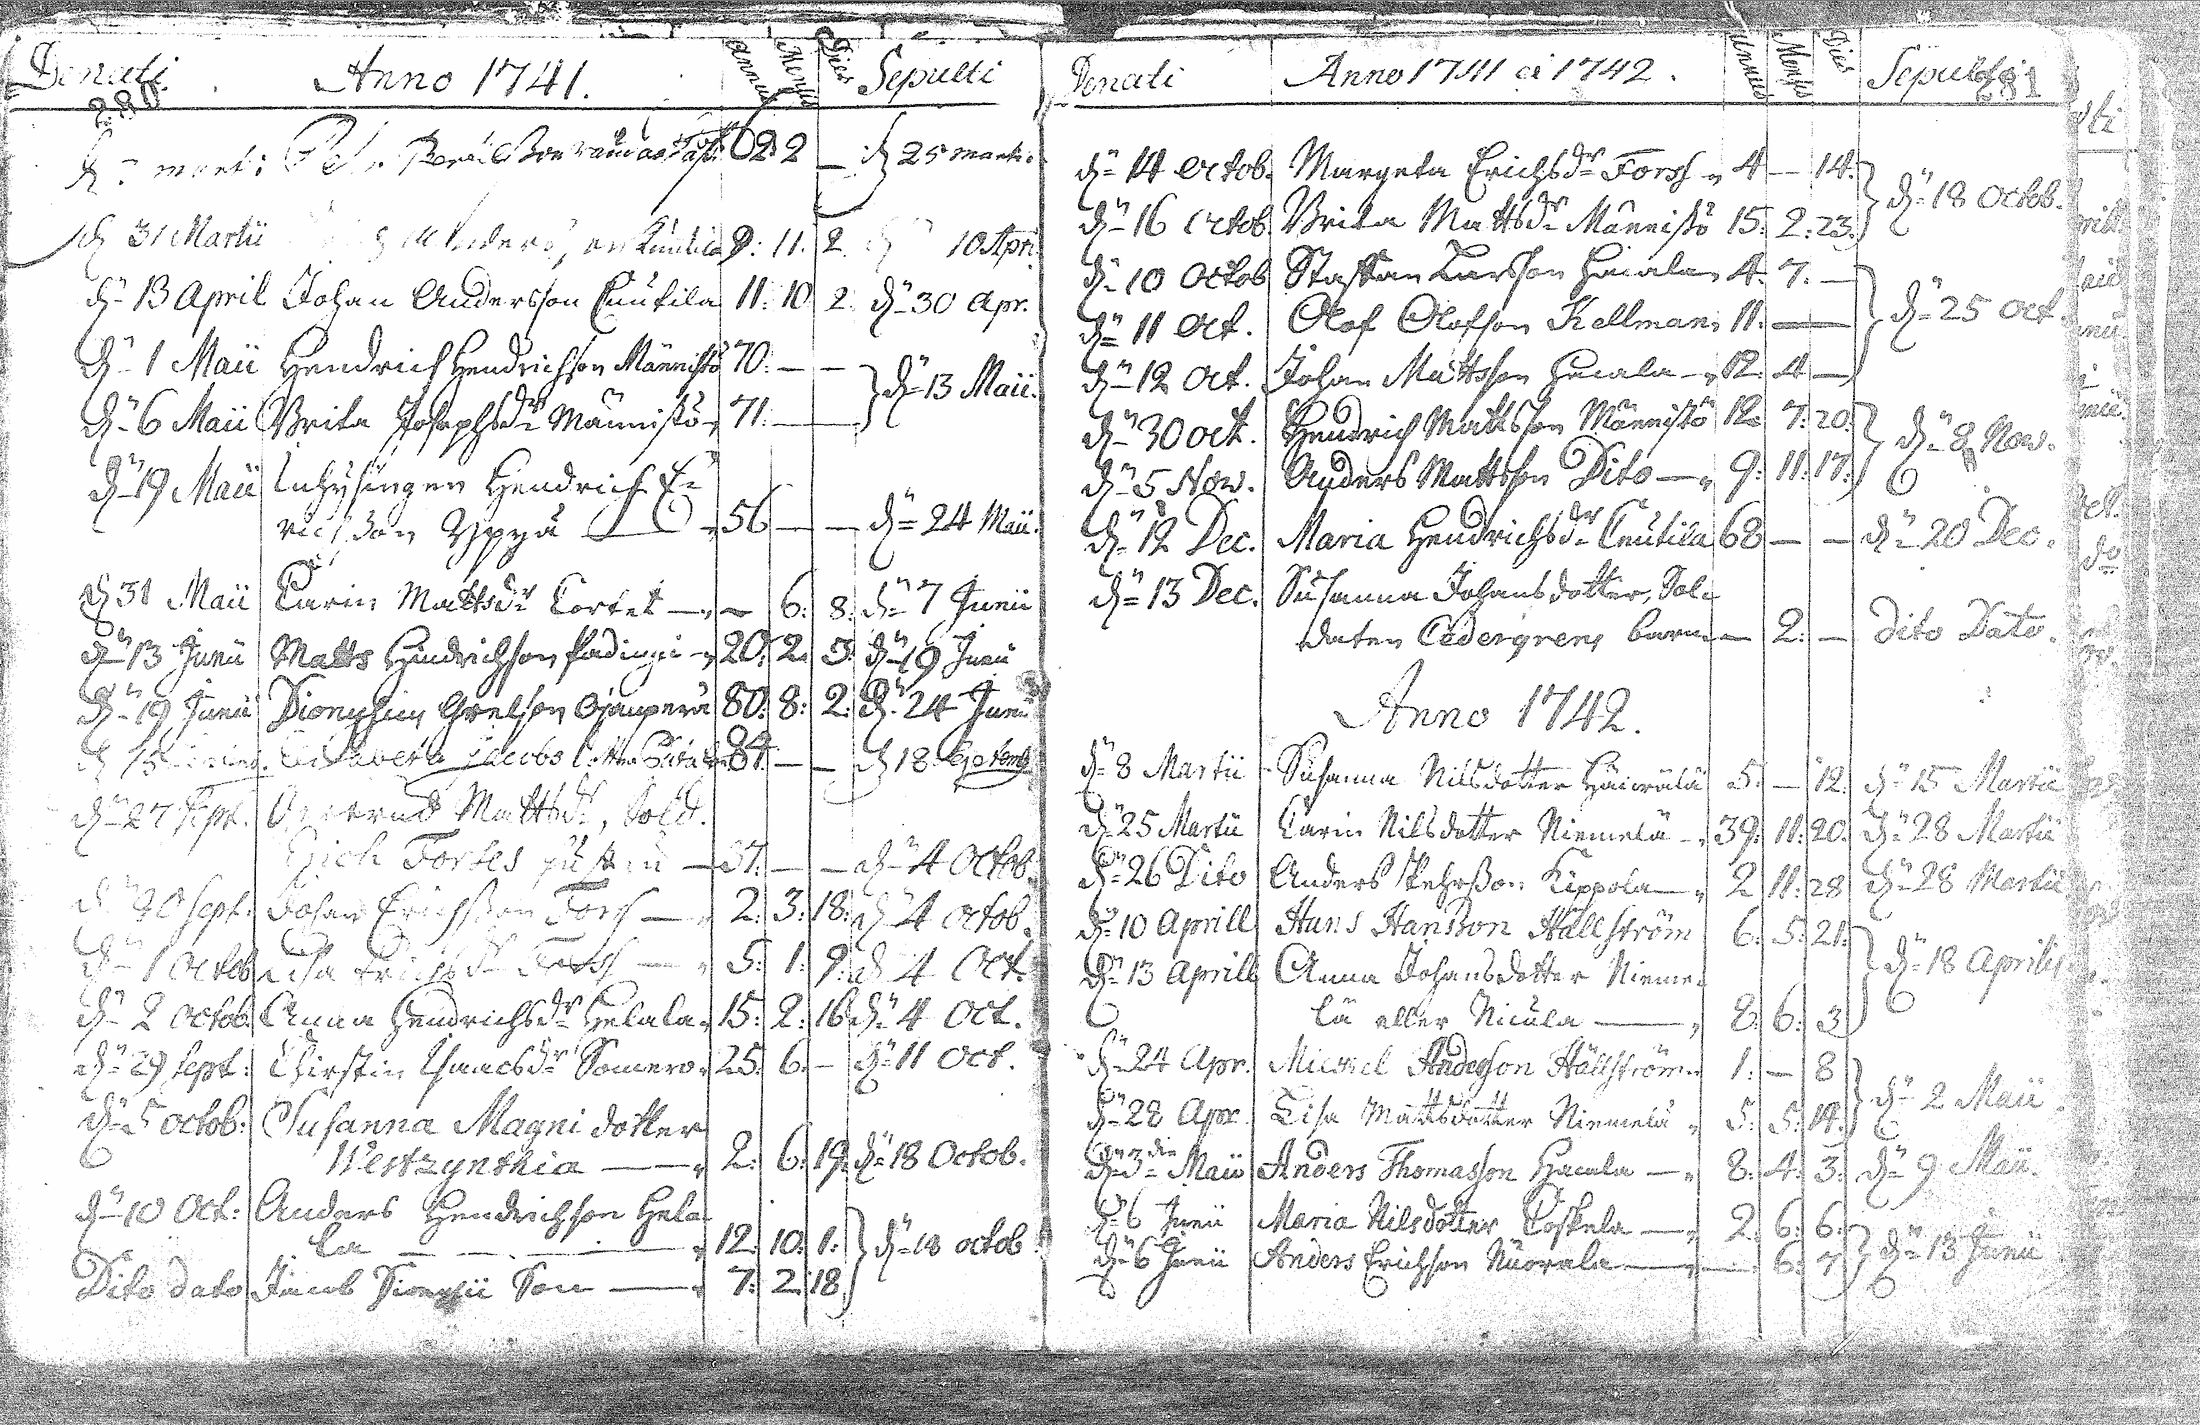 Denati Anno 1741. Annus Mensis Dies Sepulti
220
mart: 2 2 — 25 martii
d 31 Martii 9: 11. 2. 10 Apri.
dn 13 April Johan Andersson Cuutila 11: 10 2. dn 30 Apr.
dn 1 Maii Hendrich Hendrichson Männistö 70: — — } dn 13 Maii.
dn 6 Maii Brita Josephsdr Männistö 71: —
dn 19 Maii Inhysingen Hendrich E-
richson Yppyä — 56 — — dn 24 Maii.
dn 31 Maii Carin Mattsdr Cortet — 6: 8: dn 7 Junii
dn 13 Junii Matts Hindrichson 20: 2. 5: dn 19 Junii
dn 19 Junii Dionysius Grelson Ojanperä 80: 8: 2: dn 24 Junii
Elisabeta Jacobs 84 — — d 18
dn 27 Sept. Mattsdr, Sold.
Erich Forses hustru — 37. — — dn 4 Octob.
dn 30 Sept. Johan Erichsson Forss — 2: 3: 18: dn 4 Octob.
dn 1 Octob. Lisa Erichsdr Forss — 5: 1: 9: dn 4 Oct.
dn 2 Octob. Anna Hendrichsdr Helala 15: 2: 16 dn 4 Oct.
dn 29 Sept: Chirstin Isaacsdr Somero 25: 6. — dn 11 Oct.
dn 5 Octob: Susanna Magni dotter
Westzynthia — 2: 6: 19: dn 18 Octob.
dn 10 Oct: Anders Hendrichson Hela-
la — 12. 10: 1: } dn 18 Octob
Dito dato Jacob Dionysii Son — 7: 2: 18
Denati Anno 1741 et 1742. Annus Mensis Dies Sepulti
281
dn 14 Octob. Margeta Erichsdr Forss 4 — 14. } dn 18 Octob.
dn 16 Octob. Brita Mattsdr Männistö 15. 2: 23.
dn 10 Octob Staffan Larsson Haiala 4. 7. — } dn 25 Oct.
dn 11 Oct. Olof Olofson Kellman 11. —
dn 12 Oct. Johan Mattsson Haiala 12. 4 —
dn 30 Oct. Hendrich Mattsson Männistö 12. 7: 20. } dn 8 Now.
dn 5 Now. Anders Mattsson Dito — 9: 11: 17:
dn 12 Dec. Maria Hendrichsdr Cuutila 68 — — dn 20 Dec.
dn 13 Dec. Susanna Johansdotter, Sol-
daten Cedergrens barn — 2: — Dito Dato.
Anno 1742.
dn 8 Martii Susanna Nilsdotter Häiwälä 5. — 12. dn 15 Martii
dn 25 Martii Carin Nilsdotter Niemelä 39: 11: 20. dn 28 Martii
dn 26 Dito Anders Pehrsson Kippola 2 11: 28 dn 28 Martii
dn 10 Aprill Hans Hansson Hällström 6: 5: 21. } dn 18 Aprilis
dn 13 Aprill Anna Johansdotter Nieme-
lä eller Nicula — 8: 6: 3
dn 24 Apr. Michel Andersson Hällström 1: — 8 } dn 2 Maii.
dn 28 Apr. Lisa Mattsdotter Niemelä 5: 5: 14.
dn 3 die Maii Anders Thomasson Haiala — 8: 4: 3: dn 9 Maii.
dn 6 Junii Maria Nilsdotter Coskela — 2. 6: 6: } dn 13 Junii
dn 6 Junii Anders Erichson Nuorala — 6: 7